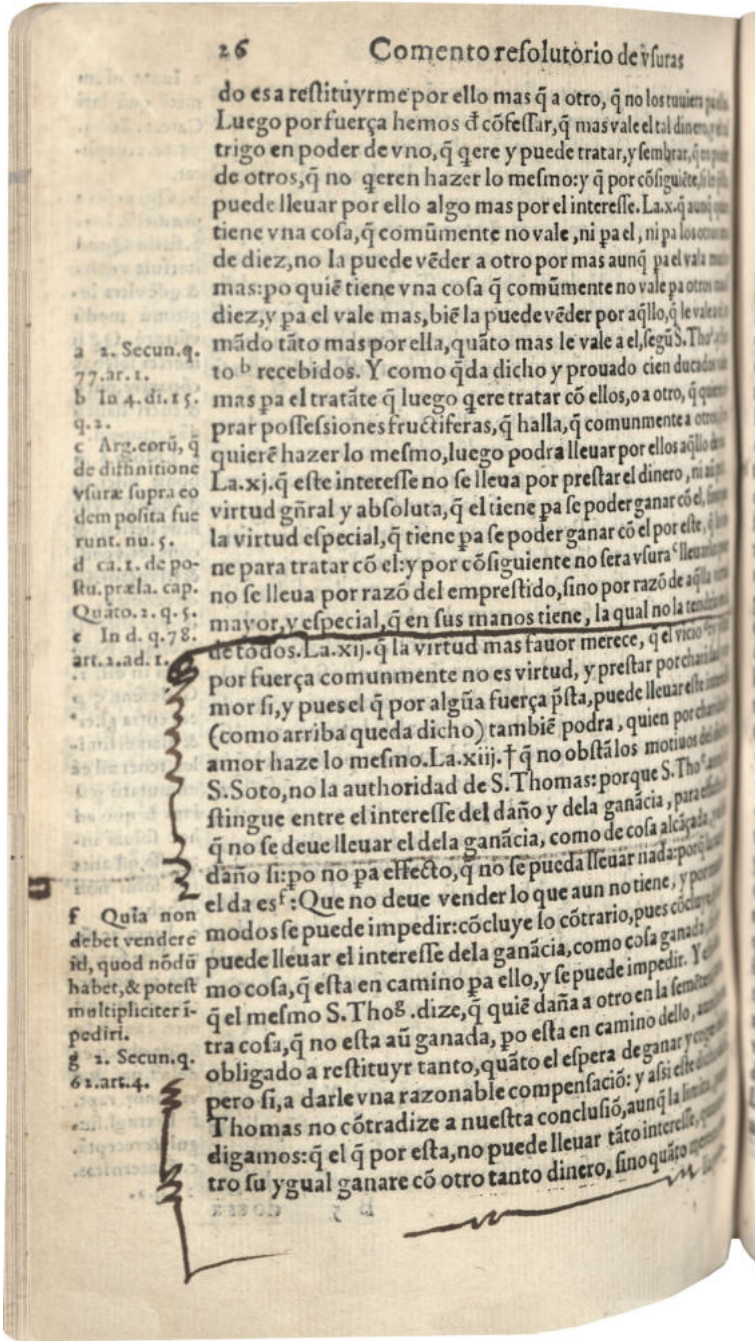 26 Comento resolutorio de vsuras
do es a restituyrme por ello mas q̃ a otro, q̃ no los tuuiera
Luego por fuerça hemos đ cõfessar, q̃ mas vale el tal dinero,
trigo en poder de vno, q̃ qere y puede tratar, y sembrar,
de otros, q̃ no qeren hazer lo mesmo: y q̃ por cõsiguiẽte,
puede lleuar por ello algo mas por el interesse. La.x. q̃ aunq̃
tiene vna cosa, q̃ comũmente no vale, ni pa el, ni pa los otros
de diez, no la puede vẽder a otro por mas aunq̃ pa el vala mucho
mas: po quiẽ tiene vna cosa q̃ comũmente no vale pa otros
diez, y pa el vale mas, biẽ la puede vẽder por aq̃llo, q̃ le vale
mãdo tãto mas por ella, quãto mas le vale a el, segũ S. Tho
to b recebidos. Y como q̃da dicho y prouado cien ducados
mas pa el tratãte q̃ luego qere tratar cõ ellos, o a otro, q̃
prar possessiones fructiferas, q̃ halla, q̃ comunmente a otros,
quierẽ hazer lo mesmo, luego podra lleuar por ellos aq̃llo
La.xj. q̃ este interesse no se lleua por prestar el dinero,
virtud gñral y absoluta, q̃ el tiene pa se poder ganar cõ el,
la virtud especial, q̃ tiene pa se poder ganar cõ el por este,
ne para tratar cõ el: y por cõsiguiente no sera vsura c
no se lleua por razõ del emprestido, sino por razõ de aq̃lla
mayor, y especial, q̃ en sus manos tiene, la qual no la
de todos. La.xij. q̃ la virtud mas fauor merece, q̃ el vicio
por fuerça comunmente no es virtud, y prestar por charidad
mor si, y pues el q̃ por algũa fuerça p̃sta, puede lleuar este
(como arriba queda dicho) tambiẽ podra, quien por charidad
amor haze lo mesmo. La.xiij. † q̃ no obstã los motiuos
S. Soto, no la authoridad de S. Thomas: porque S. Tho
stingue entre el interesse del daño y dela ganãcia, para
q̃ no se deue lleuar el dela ganãcia, como de cosa alcãçada,
daño si: po no pa effecto, q̃ no se pueda lleuar nada:
el da es f: Que no deue vender lo que aun no tiene, y por
modos se puede impedir: cõcluye lo cõtrario, pues
puede lleuar el interesse dela ganãcia, como cosa ganada
mo cosa, q̃ esta en camino pa ello, y se puede impedir. Y
q̃ el mesmo S. Tho g. dize, q̃ quiẽ daña a otro en la
tra cosa, q̃ no esta aũ ganada, po esta en camino dello,
obligado a restituyr tanto, quãto el espera de ganar y
pero si, a darle vna razonable compensaciõ: y assi este
Thomas no cõtradize a nuestta conclusiõ, aunq̃ la
digamos: q̃ el q̃ por esta, no puede lleuar tãto interesse,
tro su ygual ganare cõ otro tanto dinero, sino quãto
a 2. Secun. q.
77. ar. 1.
b In 4. di. 15.
q. 2.
c Arg. eorũ, q̃
de diffinitione
vsuræ supra eo
dem posita fue
runt. nu. 5.
d ca. 1. de po-
stu. præla. cap.
Quãto. 2. q. 5.
e In d. q. 78.
art. 2. ad. 1.
f Quia non
debet vendere
id, quod nõdũ
habet, & potest
multipliciter ĩ-
pediri.
g 2. Secun. q.
62. art. 4.